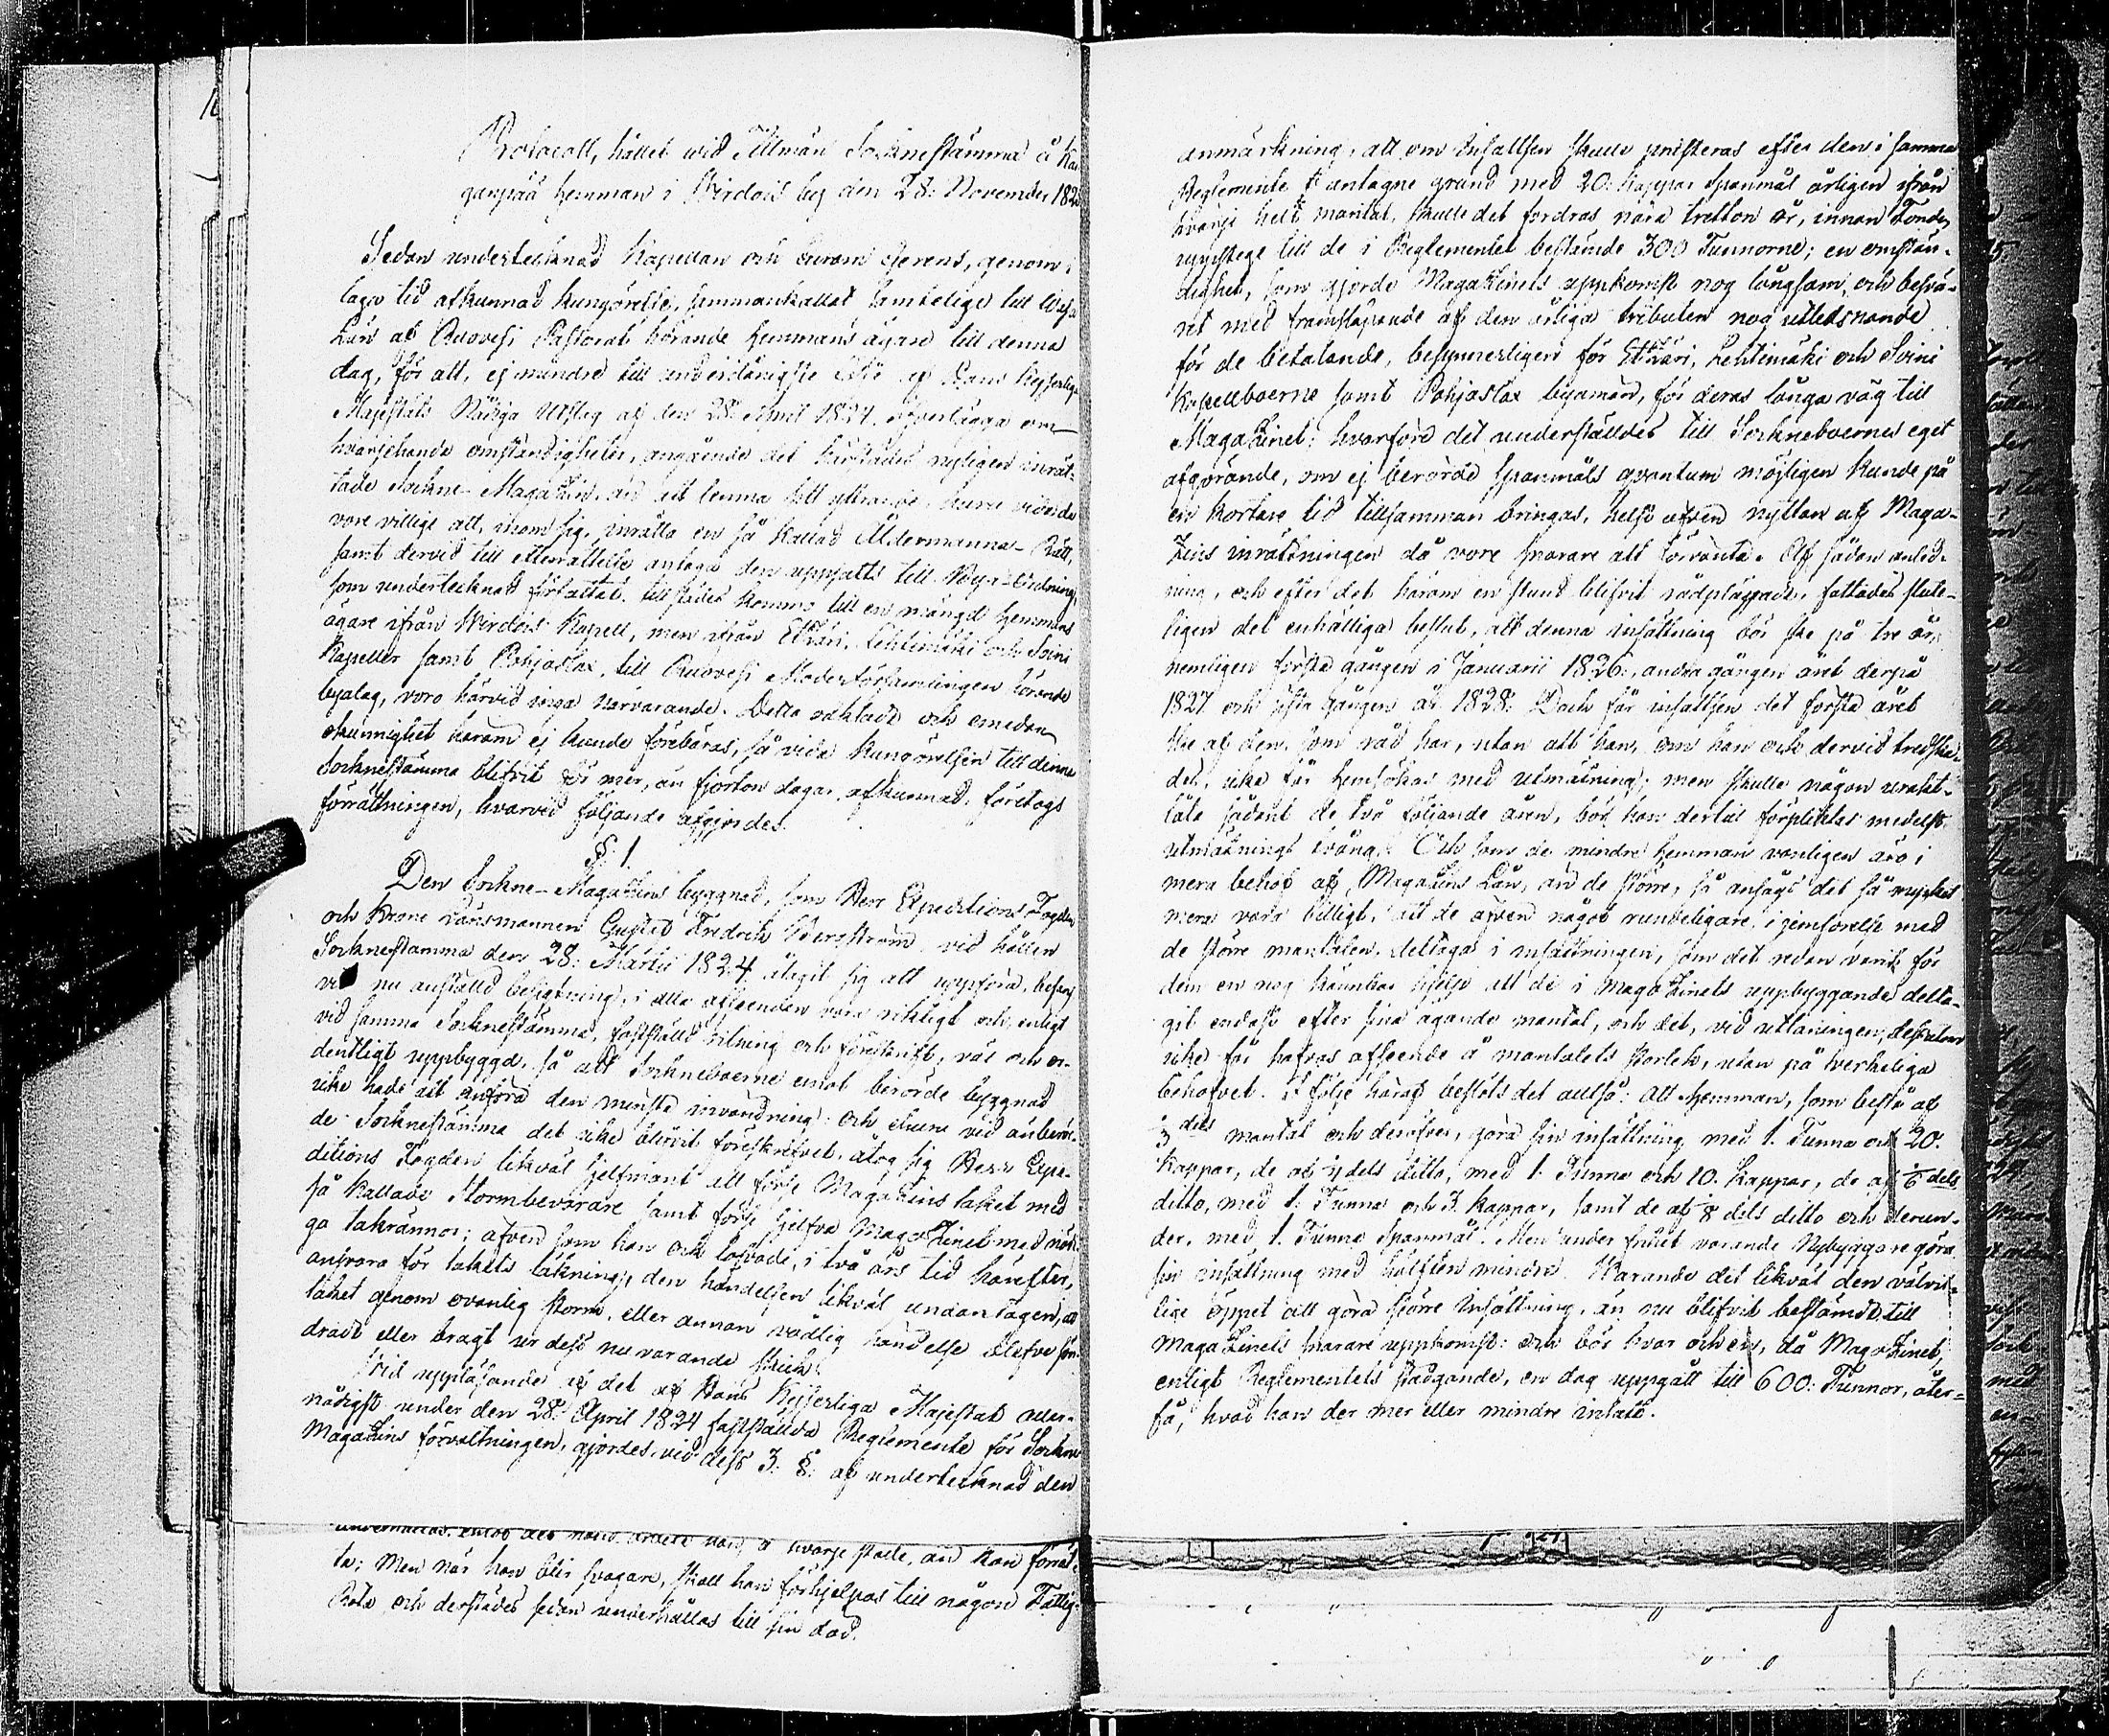 Protocoll, hållet wid Allmän Socknestämma å Kan
gaspää hemman i Wirdois by den 28: November 182
Sedan undertecknad Kapellan och Curam gerens, genom i
laga tid afkunnad kungörelse, sammankallat samtelige till Wasa
Län af Ruovesi Pastorat hörande Hemmans ägare till denna
dag, för att, ej mindre till underdånigste af Hans Kejserlige
Majestäts Nådiga Utslag af den 28 April 1824, öfverlägga om
hvarjehanda omständigheter, angående det härstädes nyligen inrät-
tade Sockne-Magazin, än ock lemna sitt yttrande, huru vida de
vore villige att, inom sig, inrätta en så kallad Åldermanna-Rätt,
samt dervid till efterrättelse antaga den uppsatts till Byaordning,
som undertecknad författat, tillstädes kommo till en mängd Hemmans
ägare ifrån Wirdois Kapell, men ifrån Etsäri, Lehtimäki och Soini
Kapeller samt Pohjaslax, till Ruovesi Moderförsamlingen hörande
byalag, voro härvid inga närvarande. Detta oaktadt och emedan
okunnighet härom ej kunde förebäras, så vida kungörelsen till denna
Socknestämma blifvit för mer, än fjorton dagar, afkunnad, företogs
förrättningen, hvarvid följande afgjordes.
§ 1.
Den Sockne-Magazins byggnad, som Herr Expeditions Fogden
och Krono Länsmannen Gustaf Fredrik Bergström vid hållen
Socknestämma den 28: Martii 1824 åtagit sig att uppföra, befans
vid nu anställd besigtning, i alla afseenden vara riktigt och, enligt
vid samma Socknestämma, fastställd ritning och föreskrift, väl och or-
dentligt uppbyggd, så att Sockneboerne emot berörde byggnad
icke hade att anföra den minsta invändning: och ehuru vid anberör-
de Socknestämma det icke blifvit föreskrifvet, åtog sig Herr Expe-
ditions Fogden likväl sjelfmant att förse Magazins taket med
så kallade Stormbevarare samt förse sjelfva Magazinet med nödi-
ga takrännor; äfven som han och lofvade, i två års tid härefter,
ansvara för takets läkning, den händelsen likväl undantagen, att
taket genom ovanlig storm, eller annan vådlig händelse blefve sön-
dradt eller bragt ur dess nu varande skick.
Vid uppläsande af det af Hans Kejserliga Majestät aller-
nådigst under den 28: April 1824 fastställda Reglemente för Sockne
Magazins förvaltningen, gjordes, vid dess 3: §: af undertecknad den
underhållas, emot det hand arbete han, å hvarje ställe, än kan förrät-
ta; Men när han blir svagare, skall han förhjelpas till någon Fattig-
Rote och derstädes sedan underhållas till sin död.
anmärkning, att om Insattsen skulle præsteras efter den i samma
Reglemente antagne grund med 20: kappar Spanmål årligen ifrån
hvarje helt mantal, skulle det fordras nära tretton år, innan Fonden
uppstege till de i Reglementet bestämde 300 Tunnorne; en omstän-
dighet, som gjorde Magazinets uppkomst nog långsam, och besvä-
ret med framsläpande af den årliga tributen nog utledsnande
för de betalande, besynnerligen för Etsäri, Lehtimäki och Soini
Kapellboerne samt Pohjaslax byamän, för deras långa väg till
Magazinet; hvarföre det underställdes till Sockneboernes eget
afgörande, om ej berörde Spanmåls qvantum möjligen kunde på
en kortare tid tillsamman bringas, helst äfven nyttan af Maga-
zins inrättningen då vore snarare att förvänta. Af sådan anled-
ning, och efter det härom en stund blifvit rådplägadt, fattades slute-
ligen det enhälliga beslut, att denna insättning bör ske på tre år,
nemligen första gången i Januarii 1826:, andra gången året derpå
1827 och sista gången år 1828: Dock får insattsen det första året
ske af den, som råd har, utan att han, om han och dervid tredska-
des, icke får hemsökas med utmätning; men skulle någon uraktt-
låta sådant de två följande åren, bör han dertill förpliktas medelst
utmätnings tvång. Och som de mindre hemman vanligen äro i
mera behof af Magazins Lån, än de större, så ansågs det så mycket
mera vara billigt, att de äfven något rundeligare, i jemförelse med
de större mantalen, deltaga i insättningen, som det redan varit för
dem en nog kännbar hjelp att de i Magazinets uppbyggande delta-
git endast efter sina ägande mantal, och det, vid utlåningen, dessutom
icke får hafvas afseende å mantalets storlek, utan på verkeliga
behofvet. I följe häraf beslöts det alltså: att Hemman, som bestå af
1/3 dels mantal och derofver, göra sin insättning med 1. Tunna och 20.
Kappar, de af 1/4 dels ditto, med 1. Tunna och 10. kappar, de af 1/6 dels
ditto, med 1: Tunna och 3. kappar, samt de af 1/8 dels ditto och derun-
der, med 1. Tunna Spanmål. Men under frihet varande Nybyggare göra
sin insättning med hälften mindre. Varande det likväl den välvil-
lige öppet att göra större Insättning, än nu blifvit bestämdt, till
Magazinets snarare uppkomst: och bör hvar och en, då Magazinet,
enligt Reglementets stadgande, en dag uppgått till 600: Tunnor, åter-
få, hvad han der mer eller mindre insatt.